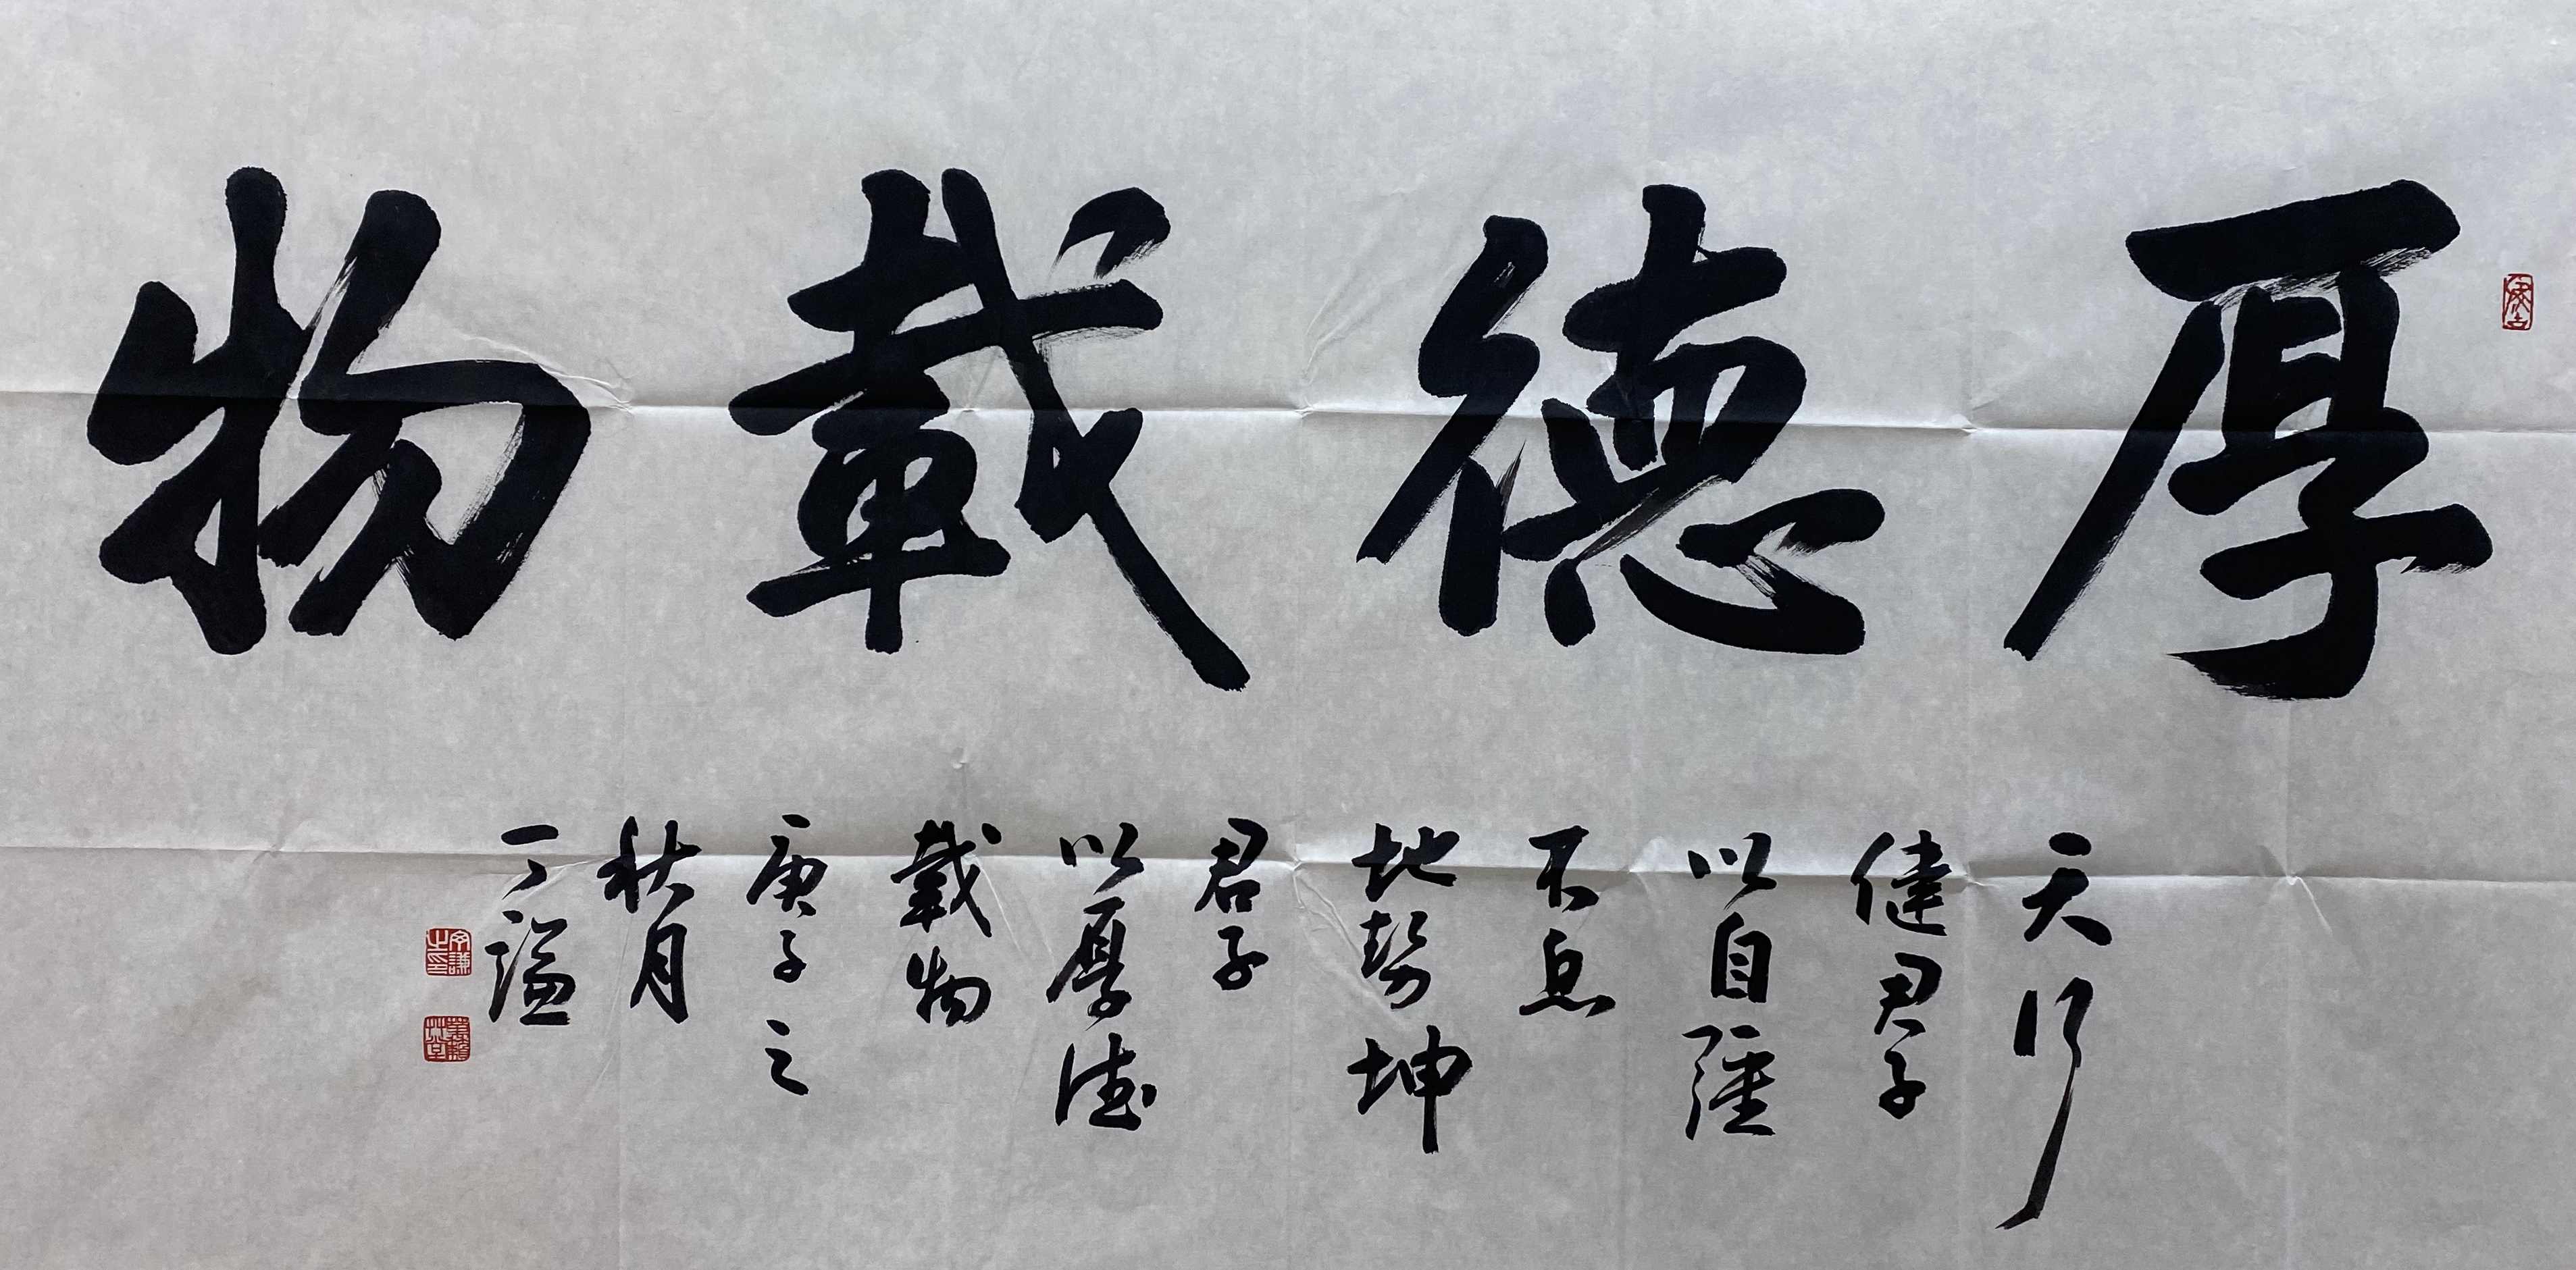 厚德載物
天行
健君子
以自強
不息
地勢坤
君子
以厚德
載物
庚子之
秋月
丁謐